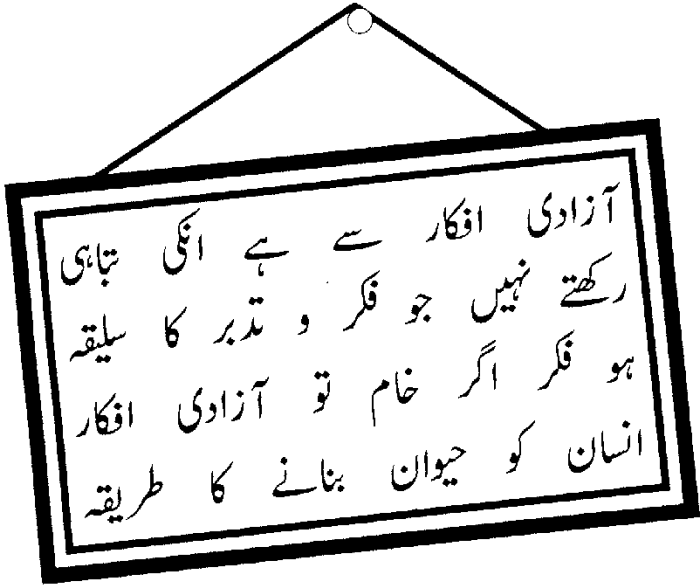 آزادی افکار سے ہے انکی تباہی
رکھتے نہیں جو فکر و تدبر کا سلیقہ
ہو فکر اگر خام تو آزادی افکار
انسان کو حیوان بنانے کا طریقہ